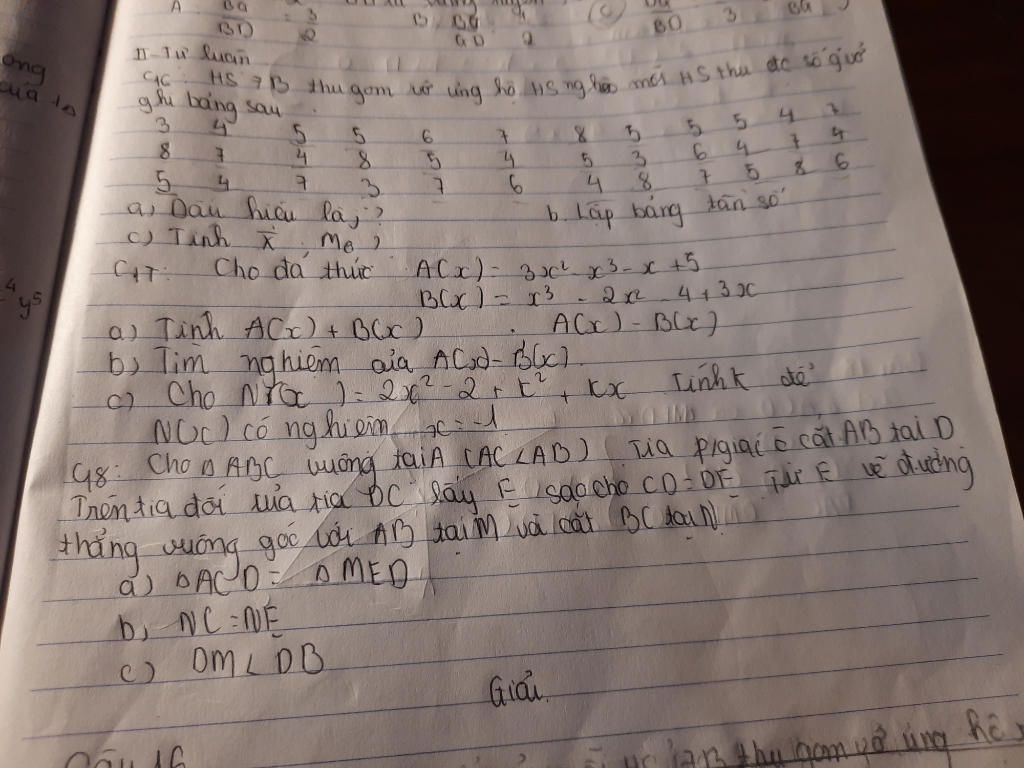 A. BG = 3 B. BG 4 C BG
BD 2 GD 2 BD 3 BG
II - Tự luận
C16: HS 7B thu gom vở ủng hộ HS nghèo mỗi HS thu đc số q vở
ghi bảng sau.
3 4 5 5 6 7 8 5 5 5 4 7
8 7 4 8 5 4 5 3 6 4 7 4
5 4 7 3 7 6 4 8 7 5 8 6
a, Dấu hiệu là? b. Lập bảng tần số
c) Tính X̄ . M₀?
C17: Cho đa thức A(x) = 3x² - x³ - x + 5
B(x) = x³ - 2x² - 4 + 3x
a) Tính A(x) + B(x) . A(x) - B(x)
b) Tìm nghiệm của A(x) - B(x)
c) Cho N(x) = 2x² - 2 + k² + kx Tính k để
N(x) có nghiệm x = -1
C18: Cho Δ ABC vuông tại A (AC < AB) Tia p/giác C cắt AB tại D
Trên tia đối của tia DC lấy E sao cho CD = DE Từ E vẽ đường
thẳng vuông góc với AB tại M và cắt BC tại N
a) Δ ACD = Δ MED
b, NC = NE
c) DM < DB
Giải.
Câu 16
7B thu gom vở ủng hộ
ong
của
⁴y⁵